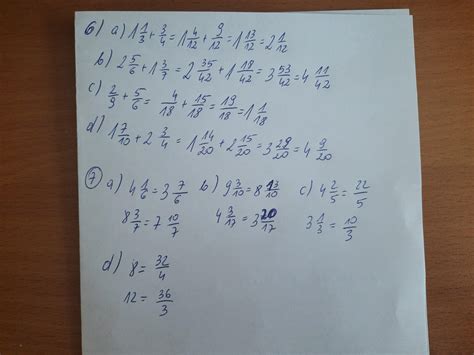 6) a) 1 1/3 + 3/4 = 1 4/12 + 9/12 = 1 13/12 = 2 1/12
b) 2 5/6 + 1 3/7 = 2 35/42 + 1 18/42 = 3 53/42 = 4 11/42
c) 2/9 + 5/6 = 4/18 + 15/18 = 19/18 = 1 1/18
d) 1 7/10 + 2 3/4 = 1 14/20 + 2 15/20 = 3 29/20 = 4 9/20
7) a) 4 1/6 = 3 7/6 b) 9 3/10 = 8 13/10 c) 4 2/5 = 22/5
8 3/7 = 7 10/7 4 3/17 = 3 20/17 3 1/3 = 10/3
d) 8 = 32/4
12 = 36/3